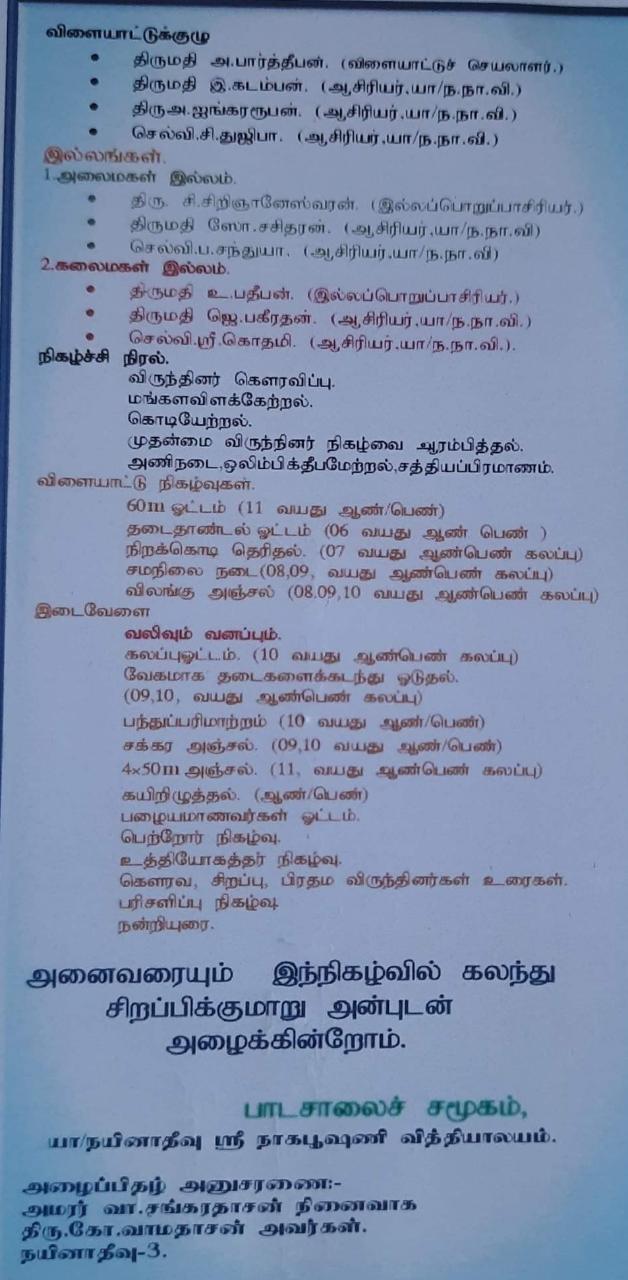 விளையாட்டுக்குழு
• திருமதி அ.பார்த்தீபன். (விளையாட்டுச் செயலாளர்.)
• திருமதி இ.கடம்பன். (ஆசிரியர்,யா/ந.நா.வி.)
• திரு.அ.ஐங்கரரூபன். (ஆசிரியர்,யா/ந.நா.வி.)
• செல்வி.சி.துஜிபா. (ஆசிரியர்,யா/ந.நா.வி.)
இல்லங்கள்.
1.அலைமகள் இல்லம்.
• திரு. சி.சிறிஞானேஸ்வரன். (இல்லப்பொறுப்பாசிரியர்.)
• திருமதி ஸோ.சசிதரன். (ஆசிரியர்,யா/ந.நா.வி)
• செல்வி.ப.சந்துயா. (ஆசிரியர்,யா/ந.நா.வி)
2.கலைமகள் இல்லம்.
• திருமதி உ.பதீபன். (இல்லப்பொறுப்பாசிரியர்.)
• திருமதி ஜெ.பகீரதன். (ஆசிரியர்,யா/ந.நா.வி.)
• செல்வி.ஸ்ரீ.கொதமி. (ஆசிரியர்,யா/ந.நா.வி.).
நிகழ்ச்சி நிரல்.
விருந்தினர் கௌரவிப்பு.
மங்களவிளக்கேற்றல்.
கொடியேற்றல்.
முதன்மை விருந்நினர் நிகழ்வை ஆரம்பித்தல்.
அணிநடை,ஒலிம்பிக்தீபமேற்றல்,சத்தியப்பிரமாணம்.
விளையாட்டு நிகழ்வுகள்.
60m ஓட்டம் (11 வயது ஆண்/பெண்)
தடைதாண்டல் ஓட்டம் (06 வயது ஆண் பெண் )
நிறக்கொடி தெரிதல். (07 வயது ஆண்பெண் கலப்பு)
சமநிலை நடை(08,09, வயது ஆண்பெண் கலப்பு)
விலங்கு அஞ்சல் (08,09,10 வயது ஆண்பெண் கலப்பு)
இடைவேளை
வலிவும் வனப்பும்.
கலப்புஓட்டம். (10 வயது ஆண்பெண் கலப்பு)
வேகமாக தடைகளைக்கடந்து ஓடுதல்.
(09,10, வயது ஆண்பெண் கலப்பு)
பந்துப்பரிமாற்றம் (10 வயது ஆண்/பெண்)
சக்கர அஞ்சல். (09,10 வயது ஆண்/பெண்)
4×50m அஞ்சல். (11, வயது ஆண்பெண் கலப்பு)
கயிறிழுத்தல். (ஆண்/பெண்)
பழையமாணவர்கள் ஓட்டம்.
பெற்றோர் நிகழ்வு.
உத்தியோகத்தர் நிகழ்வு.
கௌரவ, சிறப்பு, பிரதம விருந்தினர்கள் உரைகள்.
பரிசளிப்பு நிகழ்வு
நன்றியுரை.
அனைவரையும் இந்நிகழ்வில் கலந்து
சிறப்பிக்குமாறு அன்புடன்
அழைக்கின்றோம்.
பாடசாலைச் சமூகம்,
யா/நயினாதீவு ஸ்ரீ நாகபூஷணி வித்தியாலயம்.
அழைப்பிதழ் அனுசரணை:-
அமரர் வா.சங்கரதாசன் நினைவாக
திரு.கோ.வாமதாசன் அவர்கள்.
நயினாதீவு-3.